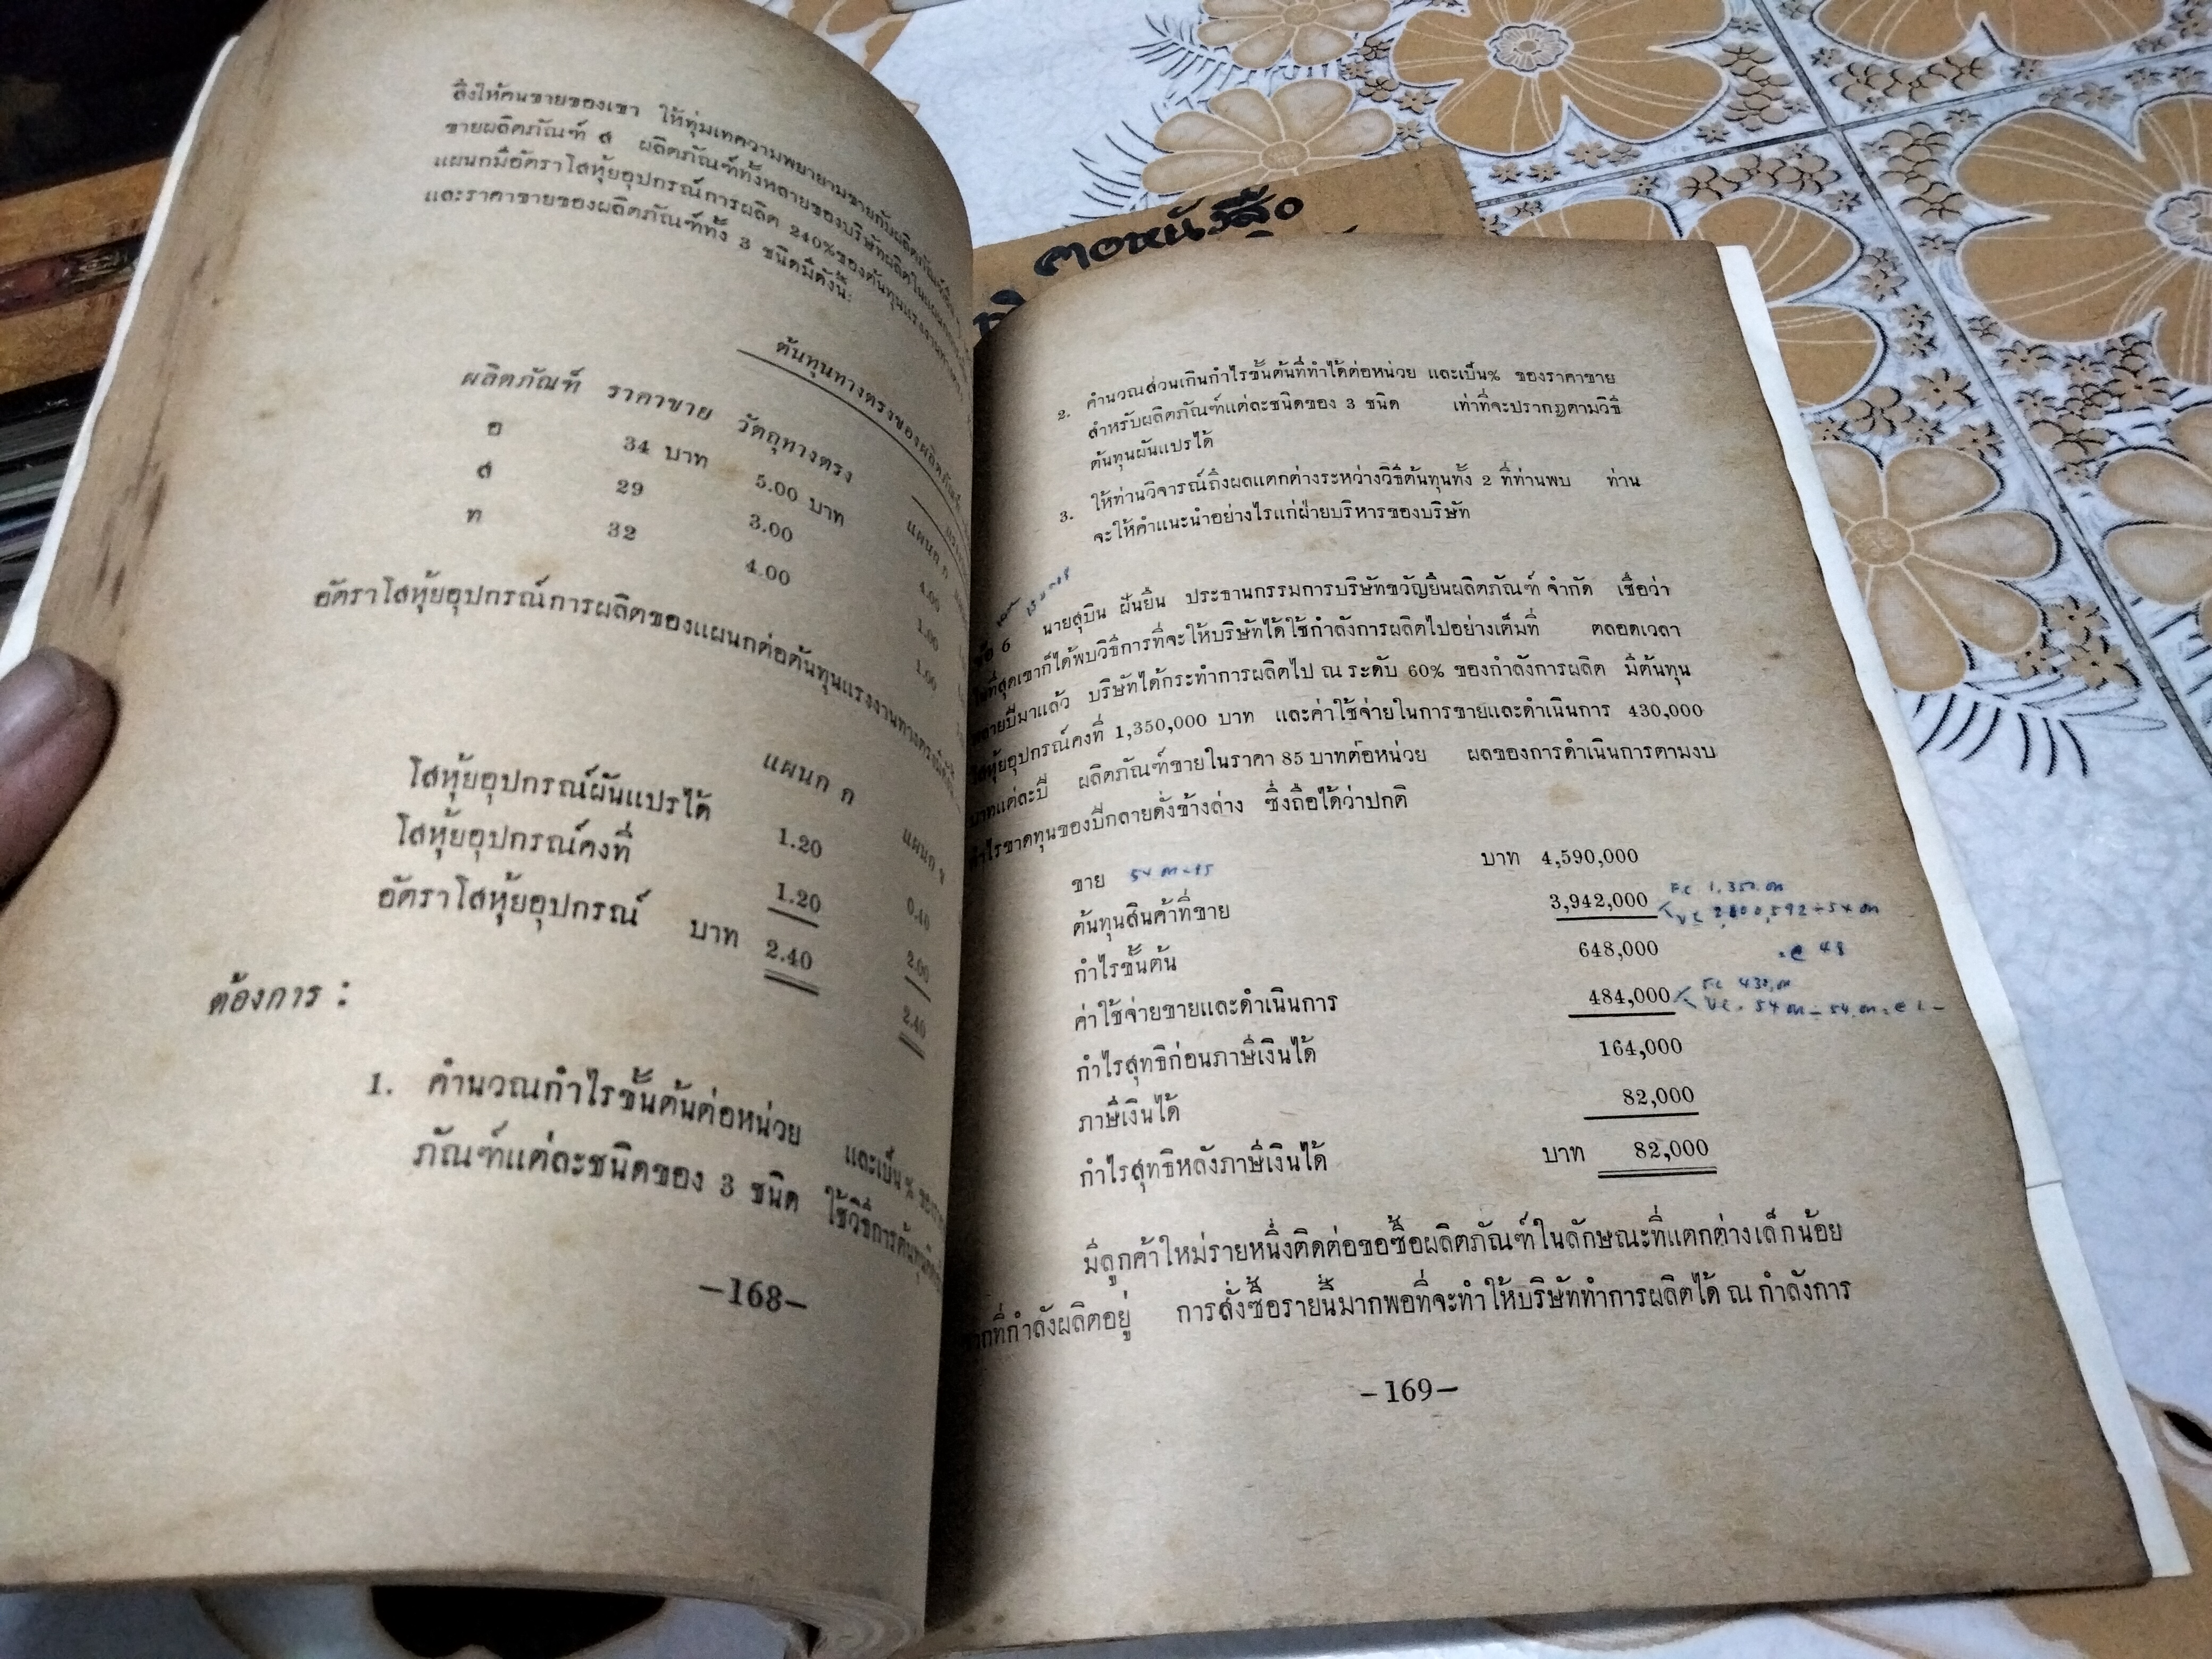 สั่งให้คนขายของเขา ให้ทุ่มเทความพยายามขายกับผลิตภัณฑ์
ขายผลิตภัณฑ์ ส ผลิตภัณฑ์ทั้งหลายของบริษัทผลิตในแผนก
แผนกมีอัตราโสหุ้ยอุปกรณ์การผลิต 240% ของต้นทุนแรงงานทางตรง
และราคาขายของผลิตภัณฑ์ทั้ง 3 ชนิดมีดังนี้:
ต้นทุนทางตรงของผลิตภัณฑ์
ผลิตภัณฑ์ ราคาขาย วัตถุทางตรง
แผนก ก
อ 34 บาท 5.00 บาท 4.00
ส 29 3.00 1.00
ท 32 4.00 1.00
อัตราโสหุ้ยอุปกรณ์การผลิตของแผนกต่อต้นทุนแรงงานทางตรงมีดังนี้
แผนก ก แผนก ข
โสหุ้ยอุปกรณ์ผันแปรได้ 1.20 0.40
โสหุ้ยอุปกรณ์คงที่ 1.20 2.00
อัตราโสหุ้ยอุปกรณ์ บาท 2.40 2.40
ต้องการ :
1. คำนวณกำไรขั้นต้นต่อหน่วย และเป็น % ของราคา
ภัณฑ์แต่ละชนิดของ 3 ชนิด ใช้วิธีการต้นทุน
-168-
คอหนังสือ
2. คำนวณส่วนเกินกำไรขั้นต้นที่ทำได้ต่อหน่วย และเป็น% ของราคาขาย
สำหรับผลิตภัณฑ์แต่ละชนิดของ 3 ชนิด เท่าที่จะปรากฏตามวิธี
ต้นทุนผันแปรได้
3. ให้ท่านวิจารณ์ถึงผลแตกต่างระหว่างวิธีต้นทุนทั้ง 2 ที่ท่านพบ ท่าน
จะให้คำแนะนำอย่างไรแก่ฝ่ายบริหารของบริษัท
ข้อ 6 นายสุบิน ฝันยื้น ประธานกรรมการบริษัทขวัญยื้นผลิตภัณฑ์ จำกัด เชื่อว่า
ในที่สุดเขาก็ได้พบวิธีการที่จะให้บริษัทได้ใช้กำลังการผลิตไปอย่างเต็มที่ ตลอดเวลา
หลายปีมาแล้ว บริษัทได้กระทำการผลิตไป ณ ระดับ 60% ของกำลังการผลิต มีต้นทุน
โสหุ้ยอุปกรณ์คงที่ 1,350,000 บาท และค่าใช้จ่ายในการขายและดำเนินการ 430,000
บาทแต่ละปี ผลิตภัณฑ์ขายในราคา 85 บาทต่อหน่วย ผลของการดำเนินการตามงบ
กำไรขาดทุนของปีกลายดั่งข้างล่าง ซึ่งถือได้ว่าปกติ
ขาย บาท 4,590,000
ต้นทุนสินค้าที่ขาย 3,942,000
กำไรขั้นต้น 648,000
ค่าใช้จ่ายขายและดำเนินการ 484,000
กำไรสุทธิก่อนภาษีเงินได้ 164,000
ภาษีเงินได้ 82,000
กำไรสุทธิหลังภาษีเงินได้ บาท 82,000
มีลูกค้าใหม่รายหนึ่งติดต่อขอซื้อผลิตภัณฑ์ในลักษณะที่แตกต่างเล็กน้อย
จากที่กำลังผลิตอยู่ การสั่งซื้อรายนี้มากพอที่จะทำให้บริษัททำการผลิตได้ ณ กำลังการ
-169-